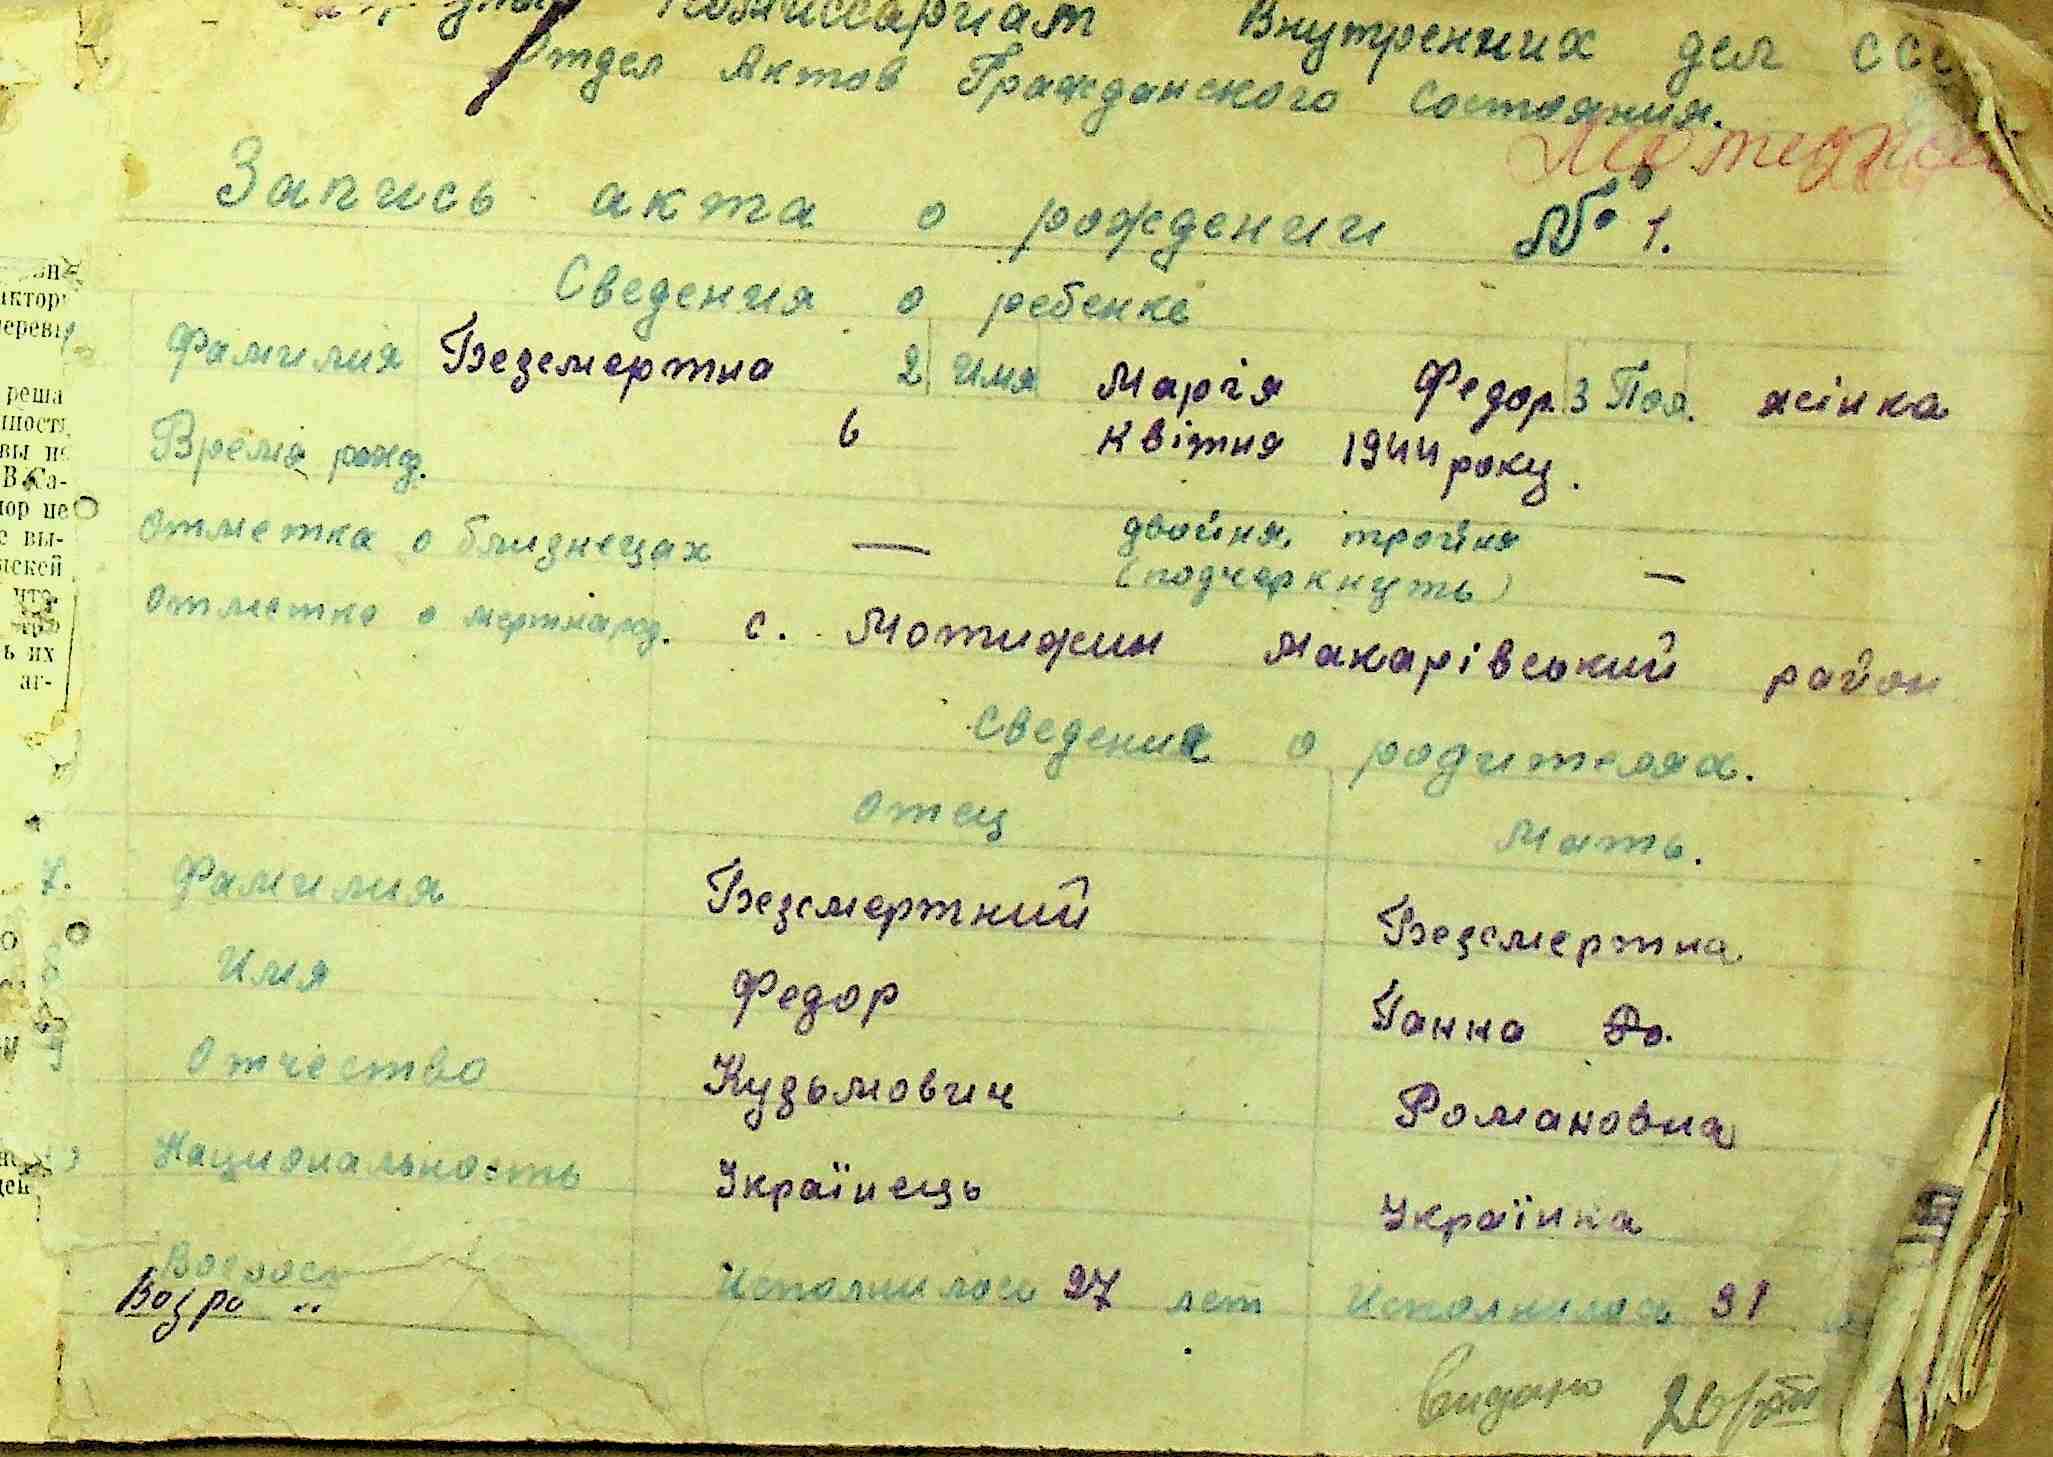 Комиссариат Внутренних дел ССС
Отдел Актов Гражданского Состояния.
Запись акта о рождении № 1.
Сведения о ребенке
Фамилия Безсмертна 2 Имя Марія Федор. 3 Пол. жінка
Время рожд. 6 квітня 1944 року.
Отметка о близнецах — двойня, тройня
(подчеркнуть) —
Отметка о мертворожд. с. Мотижин Макарівський район
Сведения о родителях.
Отец Мать.
7. Фамилия Безсмертний Безсмертна
Имя Федор Ганна Ро.
Отчество Кузьмович Романовна
Национальность Українець Українка
Возраст Исполнилось 27 лет Исполнилось 31
Возра
видано